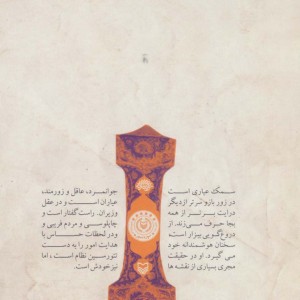 سمک عیاری است
در زور بازو برتر از دیگر
عیاران است و در عقل
و درایت برتر از همه
وزیران. راست‌گفتار است و
بجا حرف می‌زند. از
چاپلوسی و مردم فریبی و
دروغ‌گویی بیزار است.
و در لحظات حساس با
سخنان هوشمندانه خود
هدایت امور را به دست
می‌گیرد. او در حقیقت
تئوریسین نظام است، اما
مجری بسیاری از نقشه ها
نیز خودش است.
جوانمرد، عاقل و زورمند،